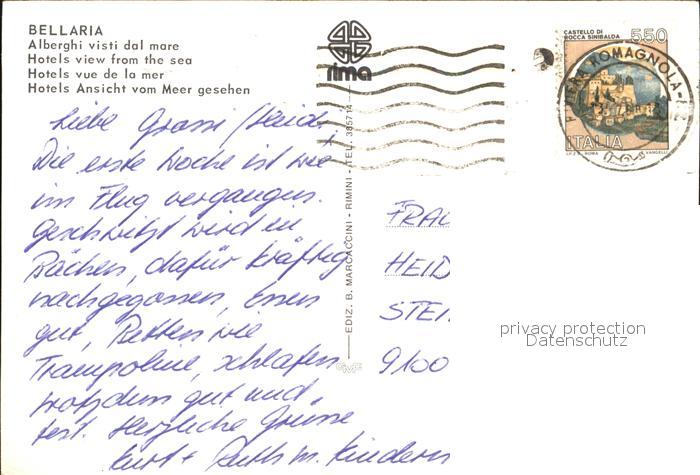 BELLARIA
Alberghi visti dal mare
Hotels view from the sea
Hotels vue de la mer
Hotels Ansicht vom Meer gesehen
rima
CASTELLO DI
ROCCA SINIBALDA
550
ROMAGNOLA
ITALIA
I.P.Z.S. ROMA
VANGELLI
Liebe Grossi / Heidi
Die erste Woche ist wie
im Flug vergangen.
Geschwitzt wird in
Bächen, dafür kräftig
nachgegossen, Essen
gut, Betten wie
Trampoline, schlafen
trotzdem gut und
fest. Herzliche Grüsse
Kurt + Ruth m. Kindern
EDIZ. B. MARCACCINI - RIMINI - TEL. 385714
FRAU
HEID
STEI
9100
privacy protection
Datenschutz